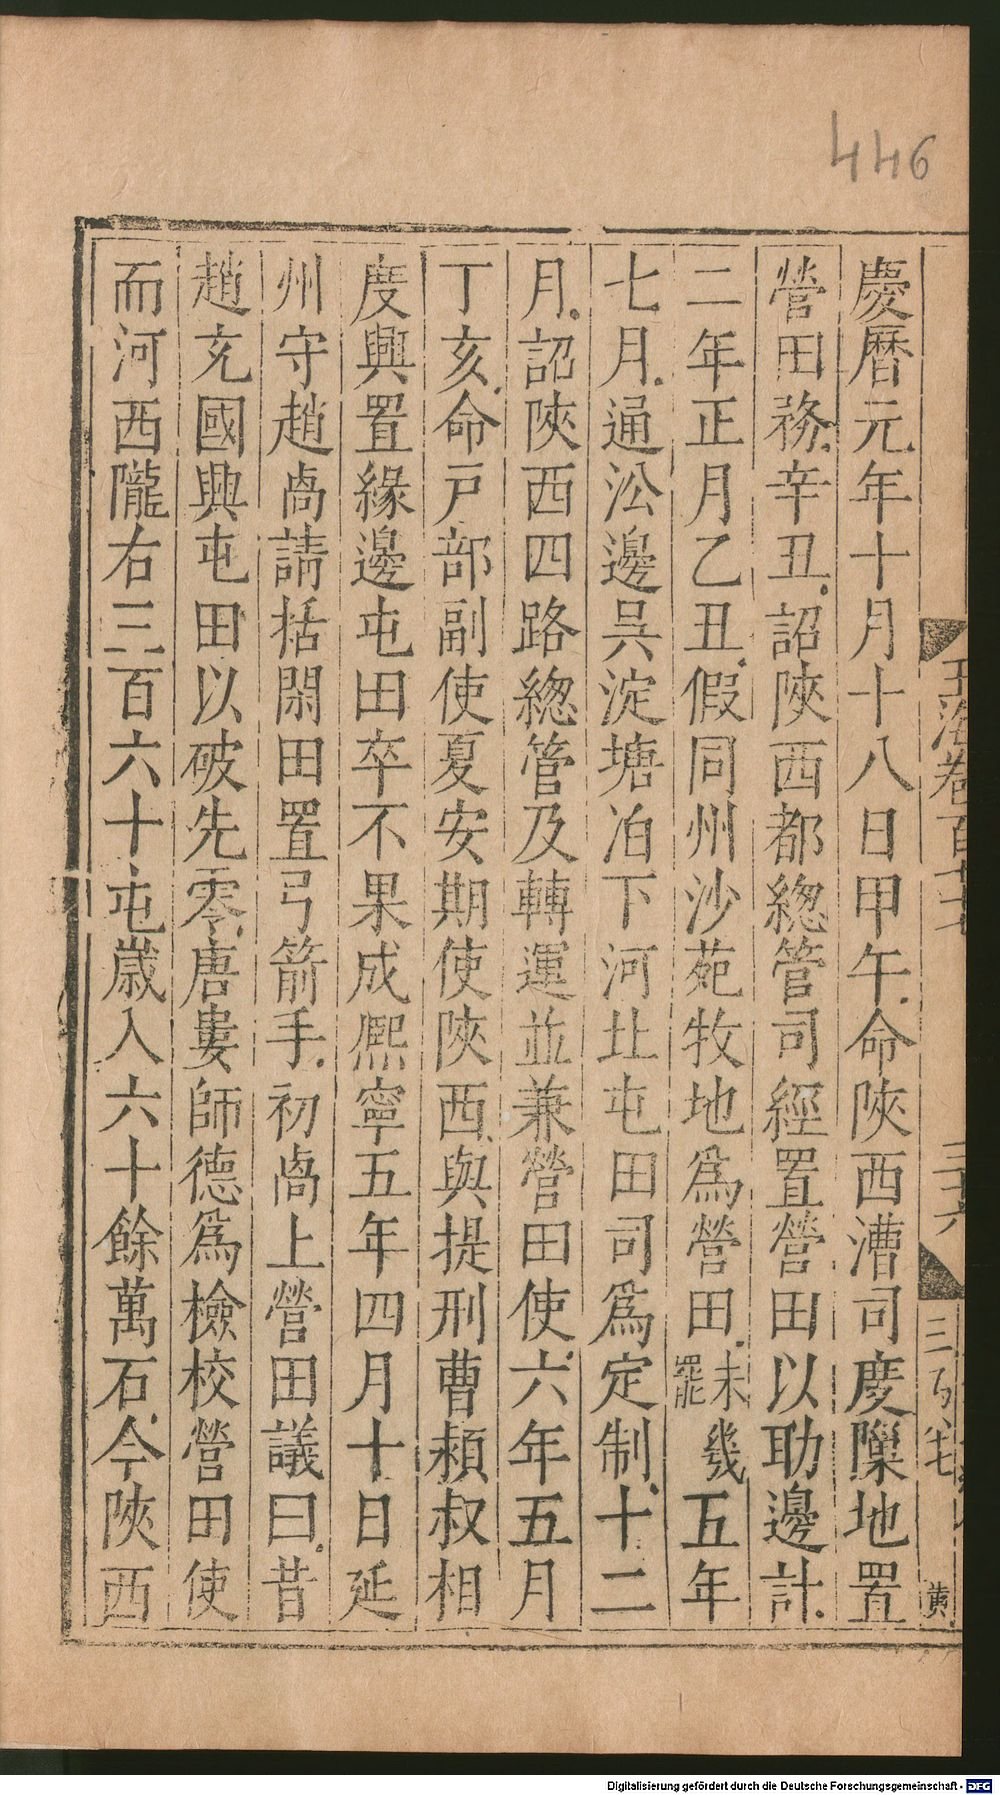 446
慶曆元年十月十八日甲午命陝西漕司度隙地置
營田務辛丑詔陝西都總管司經置營田以助邊計
二年正月乙丑假同州沙苑牧地爲營田未幾罷五年
七月通㳂邊吳淀塘泊下河北屯田司爲定制十二
月詔陝西四路總管及轉運並兼營田使六年五月
丁亥命戸部副使夏安期使陝西與提刑曹頴叔相
度興置緣邊屯田卒不果成熈寧五年四月十日延
州守趙卨請括閑田置弓箭手初卨上營田議曰昔
趙充國興屯田以破先零唐婁師德爲檢校營田使
而河西隴右三百六十屯歳入六十餘萬石今陝西
玉海卷百七十七
三十六
黃
Digitalisierung gefördert durch die Deutsche Forschungsgemeinschaft - DFG